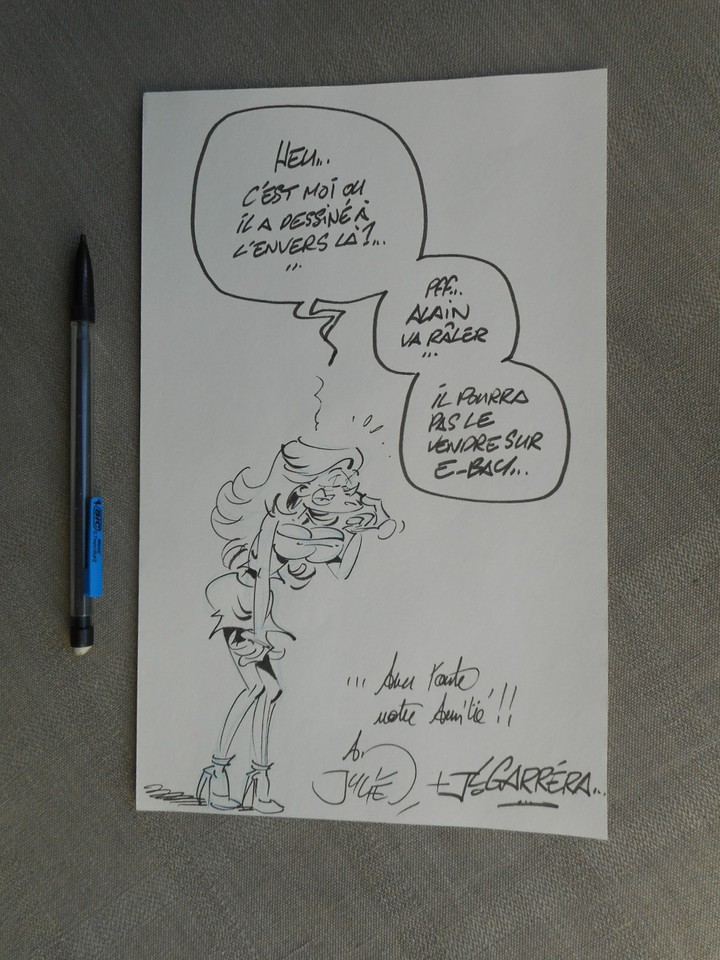 HEU...
C'EST MOI OU
IL A DESSINÉ À
L'ENVERS LÀ?...
...
PFF...
ALAIN
VA RÂLER
...
IL POURRA
PAS LE
VENDRE SUR
E-BAY...
... Avec toute
notre Amitié!!
JULIÉ + JS GARRÉRA...
BIC